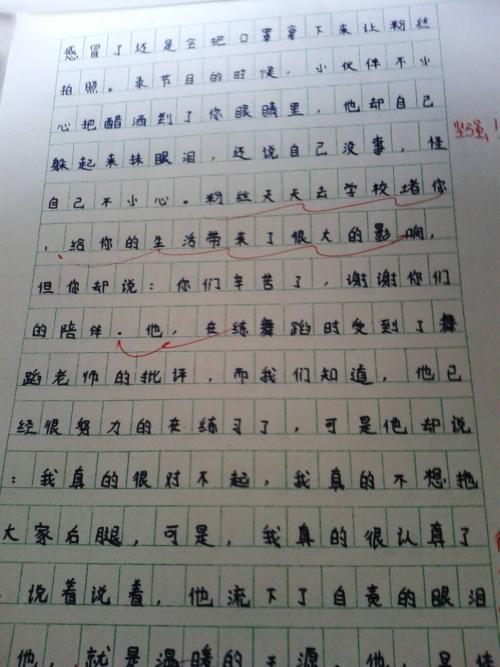 感冒了还是会把口罩拿下来让粉丝
拍照。录节目的时候，小伙伴不小
心把醋洒到了你眼睛里，他却自己
躲起来抹眼泪，还说自己没事，怪
自己不小心。粉丝天天去学校堵你
，给你的生活带来了很大的影响，
但你却说：你们辛苦了，谢谢你们
的陪伴。他，在练舞蹈时受到了舞
蹈老师的批评，而我们知道，他已
经很努力的在练习了，可是他却说
：我真的很对不起，我真的不想拖
大家后腿，可是，我真的很认真了
。说着说着，他流下了自责的眼泪
他，就是温暖的来源，他，是
坚强！